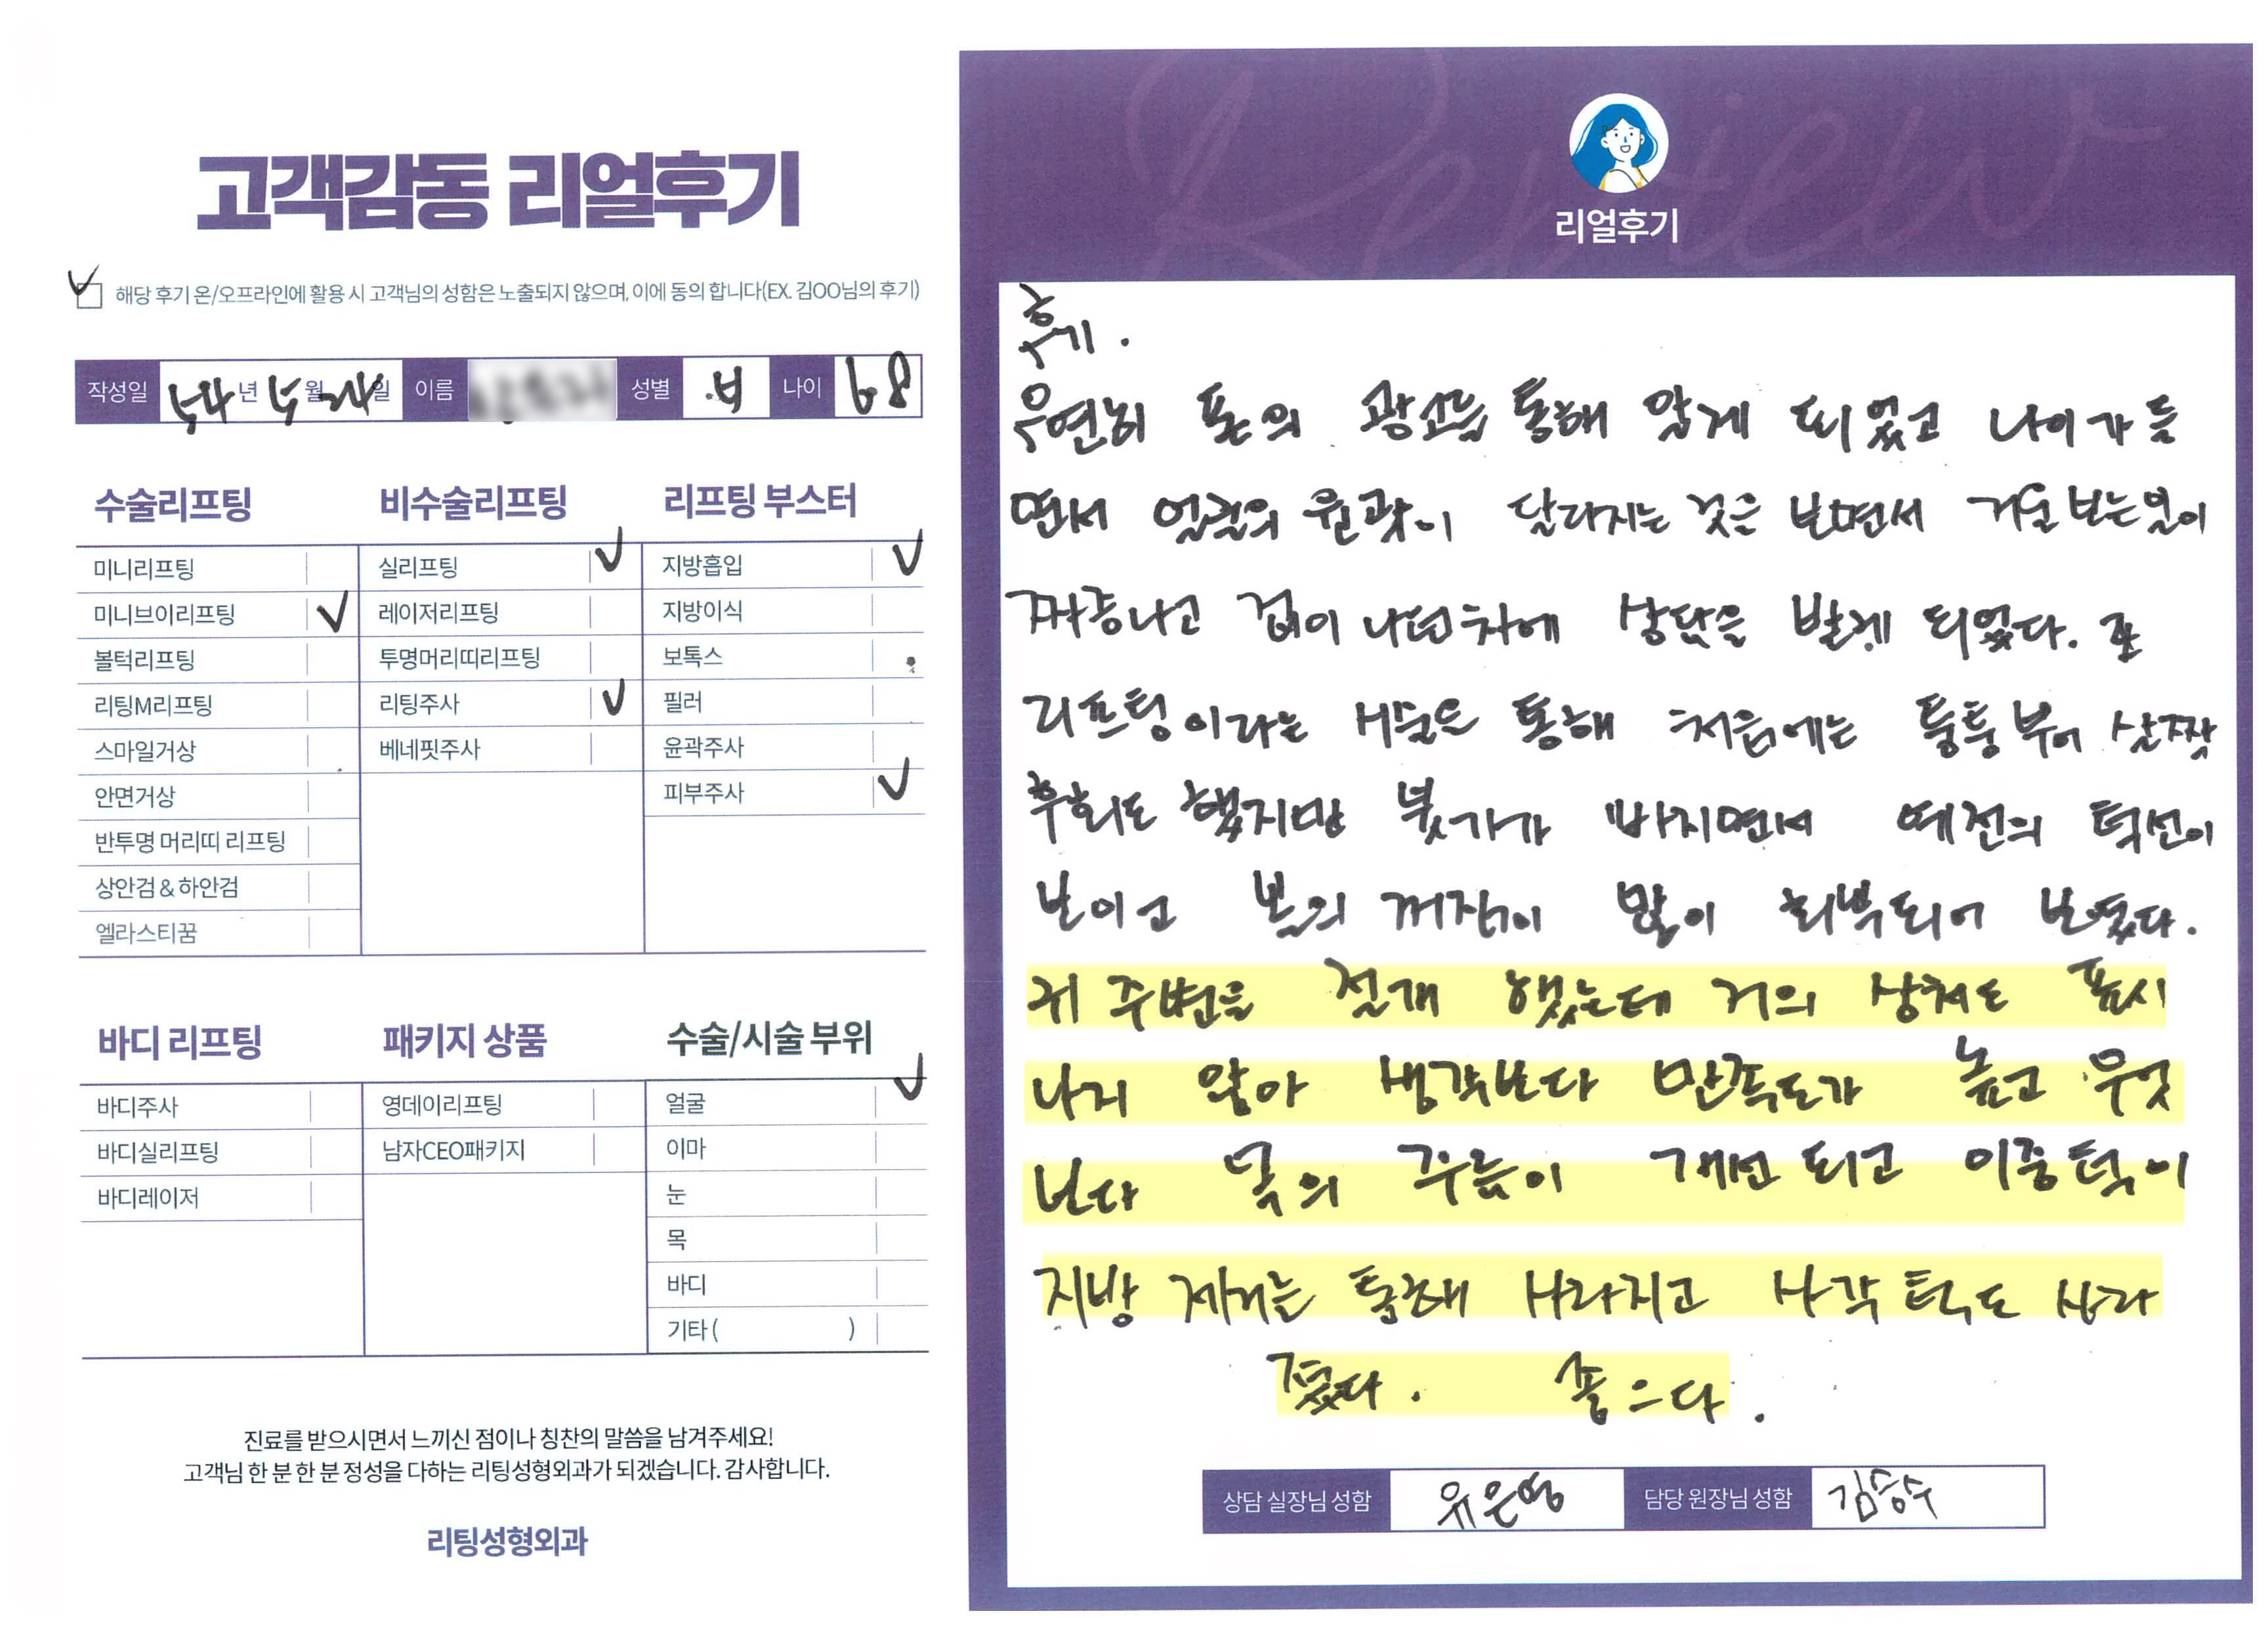 고객감동 리얼후기
해당 후기 온/오프라인에 활용 시 고객님의 성함은 노출되지 않으며, 이에 동의 합니다(EX. 김OO님의 후기)
작성일 년 5월 24일 이름 성별 여 나이 68
수술리프팅
미니리프팅
미니브이리프팅
볼턱리프팅
리팅M리프팅
스마일거상
안면거상
반투명 머리띠 리프팅
상안검 & 하안검
엘라스티꿈
비수술리프팅
실리프팅
레이저리프팅
투명머리띠리프팅
리팅주사
베네핏주사
리프팅 부스터
지방흡입
지방이식
보톡스
필러
윤곽주사
피부주사
바디 리프팅
바디주사
바디실리프팅
바디레이저
패키지 상품
영데이리프팅
남자CEO패키지
수술/시술 부위
얼굴
이마
눈
목
바디
기타 ( )
진료를 받으시면서 느끼신 점이나 칭찬의 말씀을 남겨주세요!
고객님 한 분 한 분 정성을 다하는 리팅성형외과가 되겠습니다. 감사합니다.
리팅성형외과
Review
리얼후기
후기.
우연히 폰의 광고를 통해 알게 되었고 나이가 들
면서 얼굴의 윤곽이 달라지는 것을 보면서 거울 보는 일이
짜증나고 겁이 나던 차에 상담을 받게 되었다.
리프팅이라는 시술을 통해 처음에는 퉁퉁 부어 살짝
후회도 했지만 붓기가 빠지면서 예전의 턱선이
보이고 볼의 꺼짐이 많이 회복되어 보였다.
귀 주변을 절개 했는데 거의 상처도 표시
나지 않아 생각보다 만족도가 높고 무엇
보다 목의 주름이 개선 되고 이중턱이
지방 제거를 통해 사라지고 사각 턱도 사라
졌다. 좋으다.
상담 실장님 성함 유은영 담당 원장님 성함 김승수